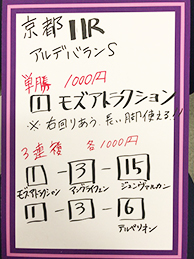 京都 11R
アルデバランS
単勝 1000円
1 モズアトラクション
※ 右回りあう、長い脚使える!!
3連複 各1000円
1 - 3 - 15
モズアトラクション アングライフェン ジュンヴァルカン
1 - 3 - 6
テルペリオン